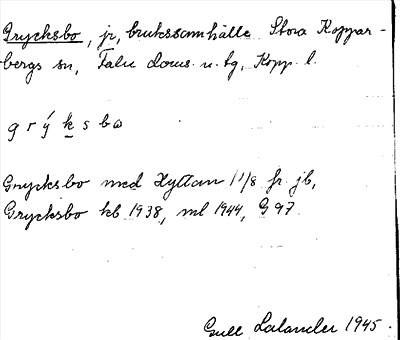 Grycksbo, jr, brukssamhälle Stora Koppar-
bergs sn, Falu doms. n. tg, Kopp. l.
g r ý k s b ω
Grycksbo med Hyttan 1 1/8 fr jb,
Grycksbo kb 1938, ml 1944, G 97.
Gull Lalander 1945.